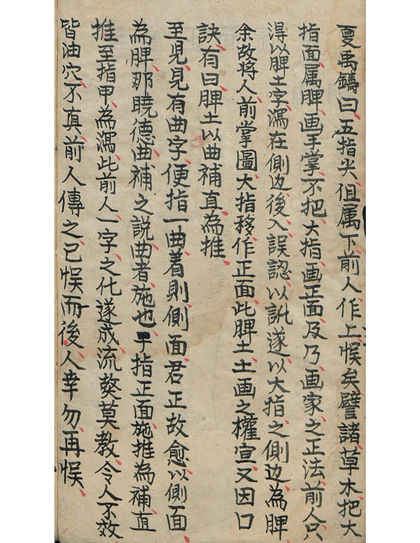 夏禹鑄曰五指尖俱属下前人作上悞矣譬諸草木把大
指面属脾画手掌不把大指画正面及乃画家之正法前人只
淂以脾土字瀉在側边後人誤認以訛遂以大指之側边為脾
余故将人前掌圖大指移作正面此脾土土画之權宜又因口
訣有曰脾土以曲補直為推
至児見有曲字便指一曲着則側面君正故愈以側面
為脾那曉德曲補之説曲者施也于指正面施推為補直
推至指甲為瀉此前人一字之化遂成流獘莫教令人不效
皆油穴不真前人傳之已悞而後人幸勿再悞